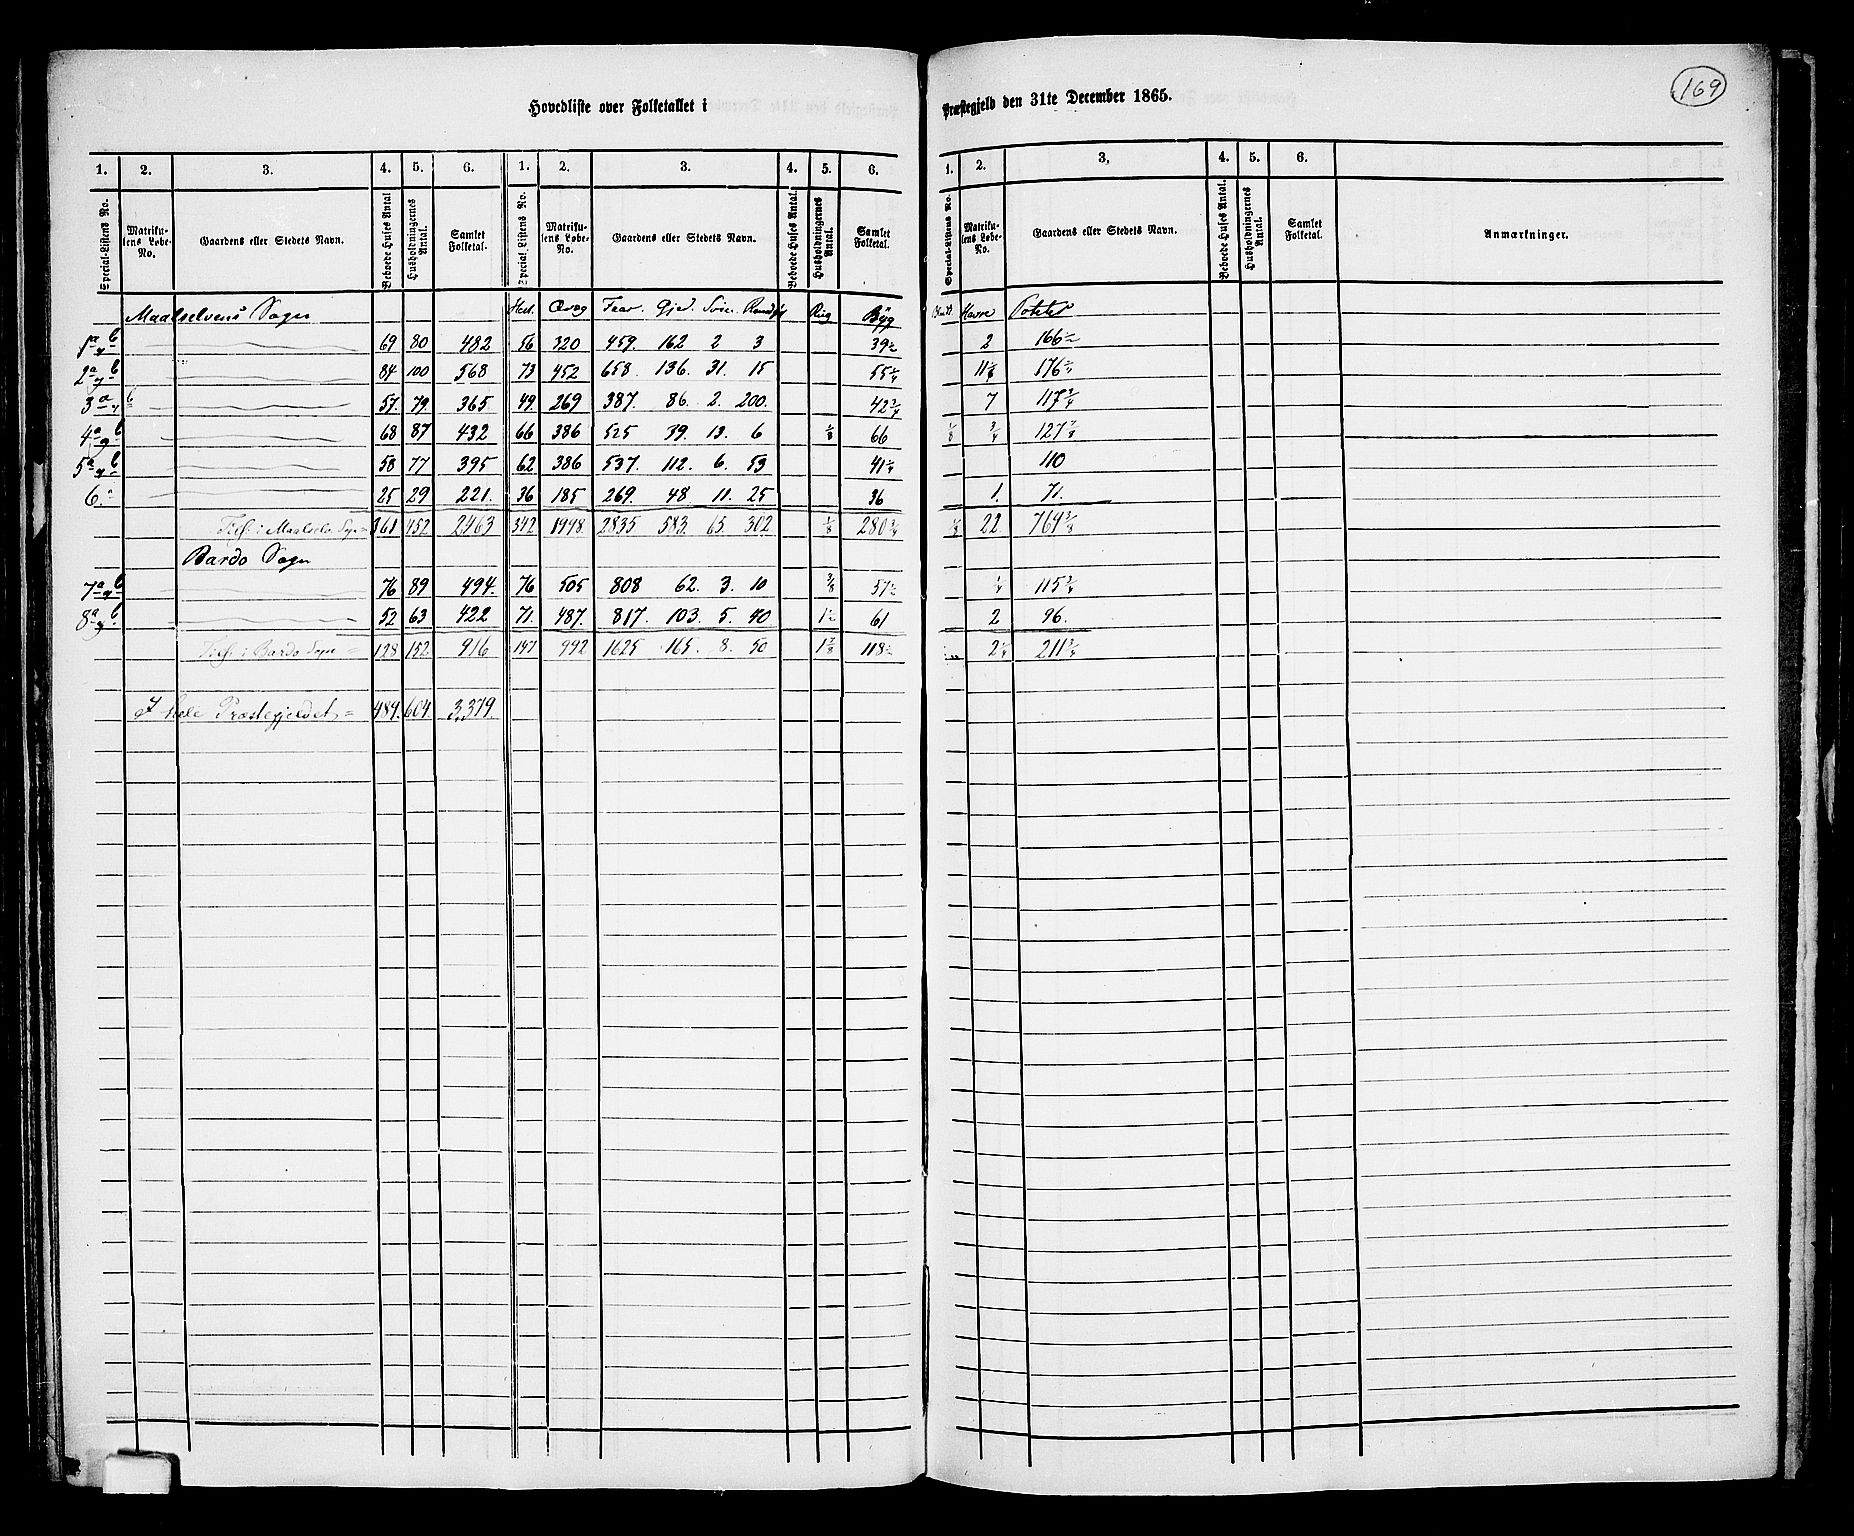 169
Hovedliste over Folketallet i Præstegjeld den 31te December 1865.
1. 2. 3. 4. 5. 6. 1. 2. 3. 4. 5. 6. 1. 2. 3. 4. 5. 6.
Special-Listens No. Matrikulens Løbe-No. Gaardens eller Stedets Navn. Beboede Huses Antal Husholdningernes Antal. Samlet Folketal. Special-Listens No. Matrikulens Løbe-No. Gaardens eller Stedets Navn. Beboede Huses Antal. Husholdningernes Antal. Samlet Folketal. Special-Listens No. Matrikulens Løbe-No. Gaardens eller Stedets Navn. Beboede Huses Antal. Husholdningernes Antal. Samlet Folketal. Anmærkninger.
Maalselvens Sogn Hest. Qvæg Faar. Gjed. Sviin. Rensdyr Rug Byg Bland. Havre Poteter
1a og b 69 80 482 56 320 459. 162 2 3 39½ 2 166½
2a og b 84 100 568 73 452 658. 136. 31. 15 55¼ 11⅛ 176¼
3a og b 57. 79. 365 49. 269 387. 86. 2. 200. 42¾ 7 117¾
4a og b 68 87 432 66 386 525 39. 13. 6 ⅛ 66 ⅛ ¾ 127⅞
5a og b 58 77 395 62 386 537. 112. 6. 53 41¼ 110
6a 25 29 221. 36 185 269. 48 11. 25 36 1. 71.
Tils. i Maalselv Sogn = 361 452 2463 342 1998 2835 583. 65. 302 ⅛ 280¾ ⅛ 22 769⅜
Bardo Sogn
7a og b 76 89 494. 76 505 808 62. 3. 10 ⅜ 57½ ¼ 115¾
8a og b. 52 63 422 71. 487. 817. 103. 5. 40 1½ 61 2 96.
Tils. i Bardo Sogn = 128 152 916 147 992 1625 165. 8. 50 1⅞ 118½ 2¼ 211¾
I hele Præstegjeldet = 489. 604. 3,379.